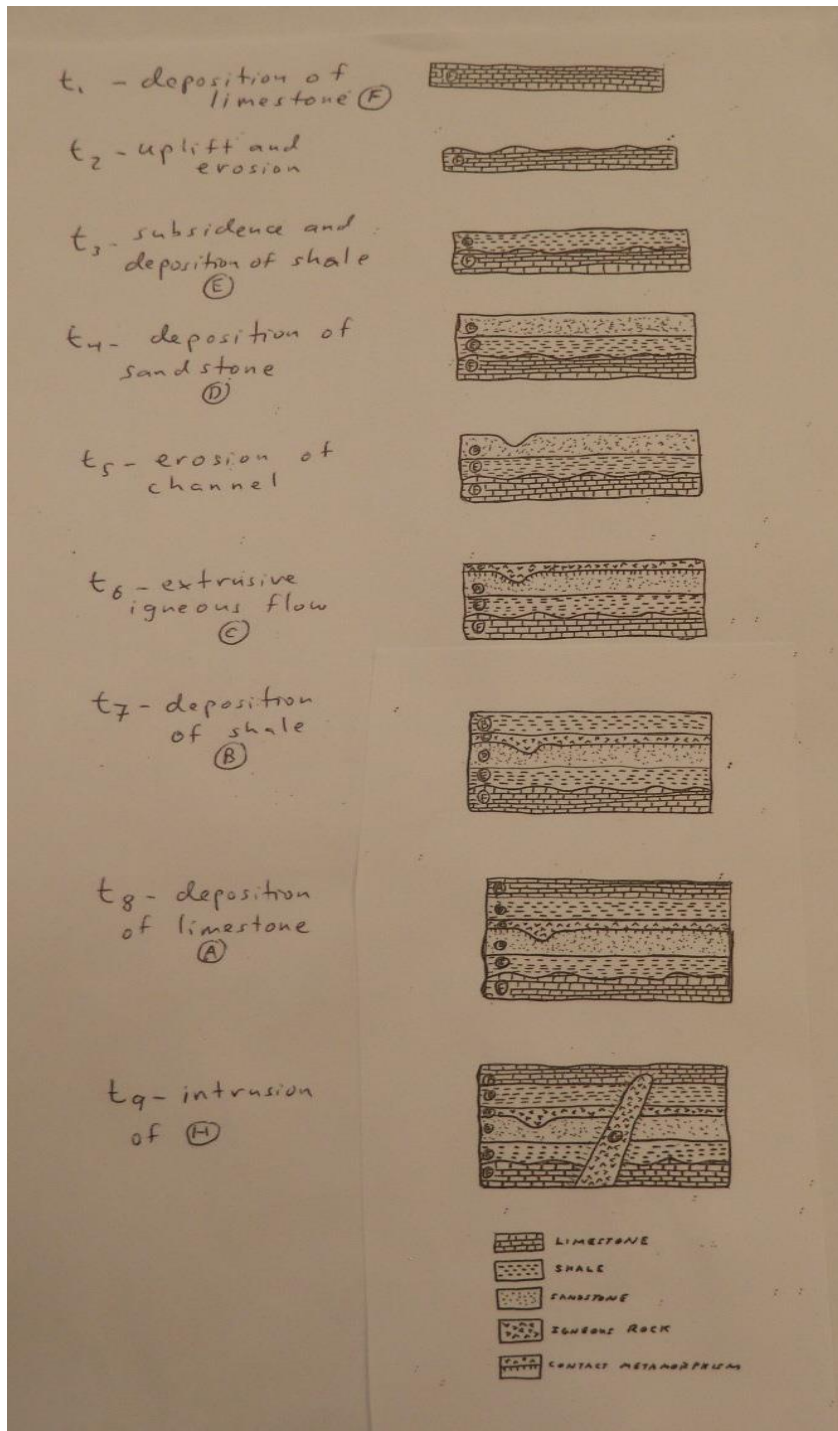 t₁ - deposition of
limestone Ⓕ
t₂ - uplift and
erosion
t₃ - subsidence and
deposition of shale
Ⓔ
t₄ - deposition of
sandstone
Ⓓ
t₅ - erosion of
channel
t₆ - extrusive
igneous flow
Ⓒ
t₇ - deposition
of shale
Ⓑ
t₈ - deposition
of limestone
Ⓐ
t₉ - intrusion
of Ⓗ
LIMESTONE
SHALE
SANDSTONE
IGNEOUS ROCK
CONTACT METAMORPHISM